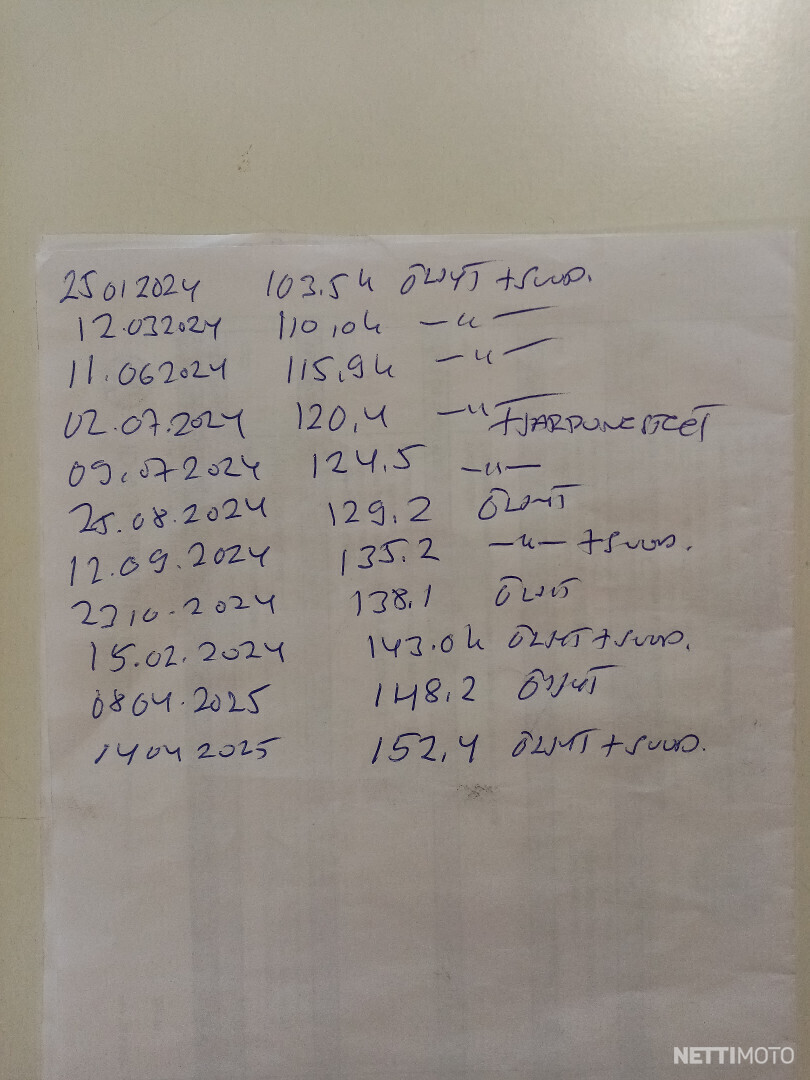 25 01 2024 103.5k ÖLJYT + SUOD.
12.03 2024 110,0k —"—
11.06 2024 115,9k —"—
02.07.2024 120,4 —"— + JARRUNESTEET
09.07 2024 124.5 —"—
25.08.2024 129.2 ÖLJYT
12.09.2024 135.2 —"— + SUOD.
23.10.2024 138.1 ÖLJYT
15.02.2024 143.0k ÖLJYT + SUOD.
08 04.2025 148.2 ÖLJYT
14 04 2025 152,4 ÖLJYT + SUOD.
NETTIMOTO